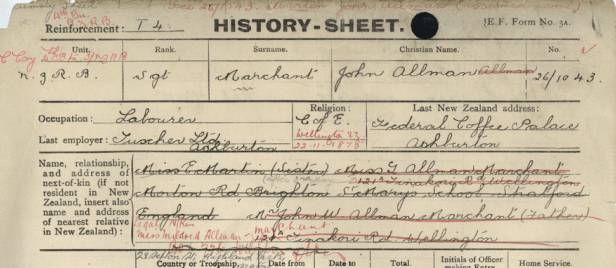 See 26/1043
HISTORY-SHEET.
Reinforcement: T 4
N.Z.E.F. Form No. 3A.
Unit. Rank. Surname. Christian Name. No.
N.Z.R.B. Sgt Marchant John Allman Allman 26/1043.
Occupation: Labourer
Religion: C of E.
Wellington NZ
22-11-1875
Last New Zealand address: Federal Coffee Palace
Ashburton
Last employer: Tuscher Ltd Ashburton
Name, relationship, and address of next-of-kin (if not resident in New Zealand, insert also name and address of nearest relative in New Zealand):
Miss E Martin (Sister) Miss G Allman Marchant
121A Tinakori Rd Wellington
Morton Rd Brighton St Marys School Stratford
England Mr John W. Allman Marchant (Father)
121A Tinakori Rd Wellington
Legal N/Ken
Miss Mildred Allman-Marchant
Country or Troopship. Date from Date to Initials of Officer